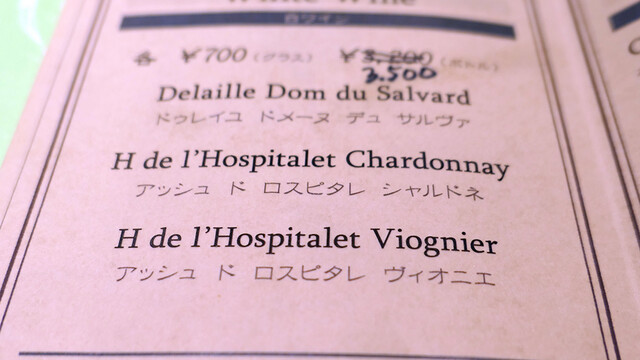 White Wine
白ワイン
各 ￥700（グラス） ￥3,200（ボトル）
3.500
Delaille Dom du Salvard
ドゥレイユ ドメーヌ デュ サルヴァ
H de l'Hospitalet Chardonnay
アッシュ ド ロスピタレ シャルドネ
H de l'Hospitalet Viognier
アッシュ ド ロスピタレ ヴィオニエ